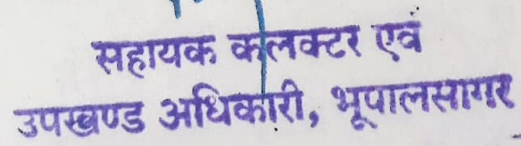 सहायक कलक्टर एवं
उपखण्ड अधिकारी, भूपालसागर